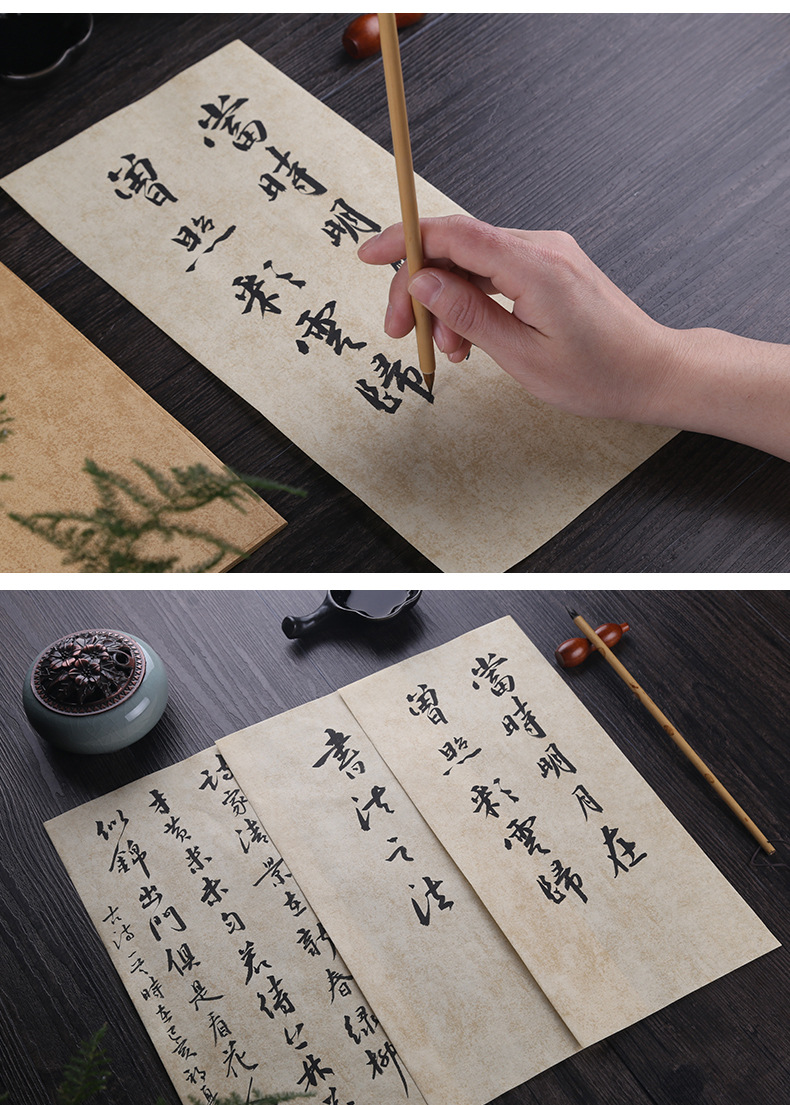 當時明
曾照彩雲歸
當時明月在
曾照彩雲歸
書法之法
詩家清景在新春綠柳
才黃半未勻若待上林
似錦出門俱是看花
古詩一首時在己亥初